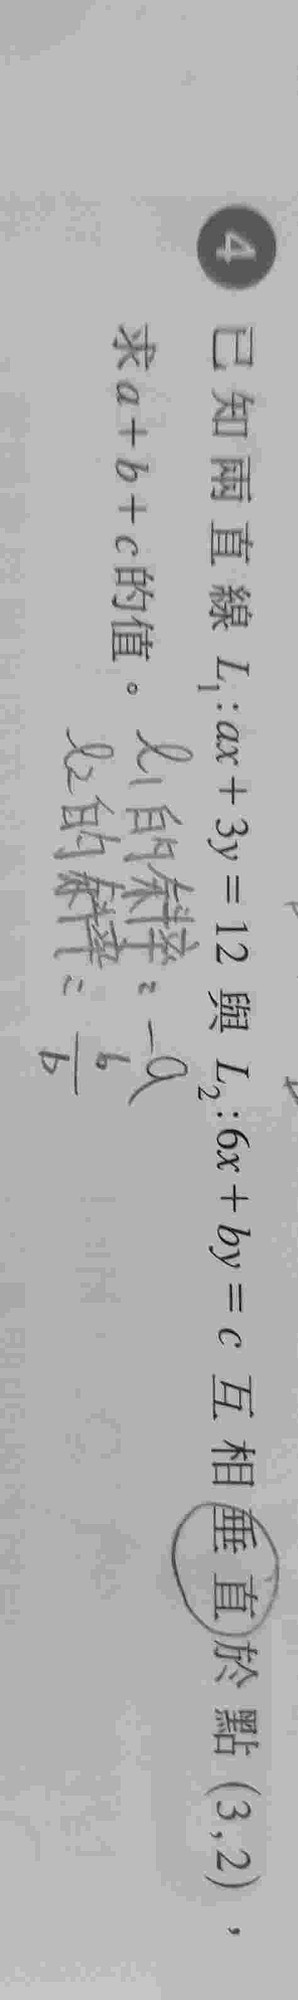 4 已知兩直線 L₁:ax+3y=12 與 L₂:6x+by=c 互相垂直於點(3,2),
求a+b+c的值。
l₁的斜率=-a
l₂的斜率=6/b